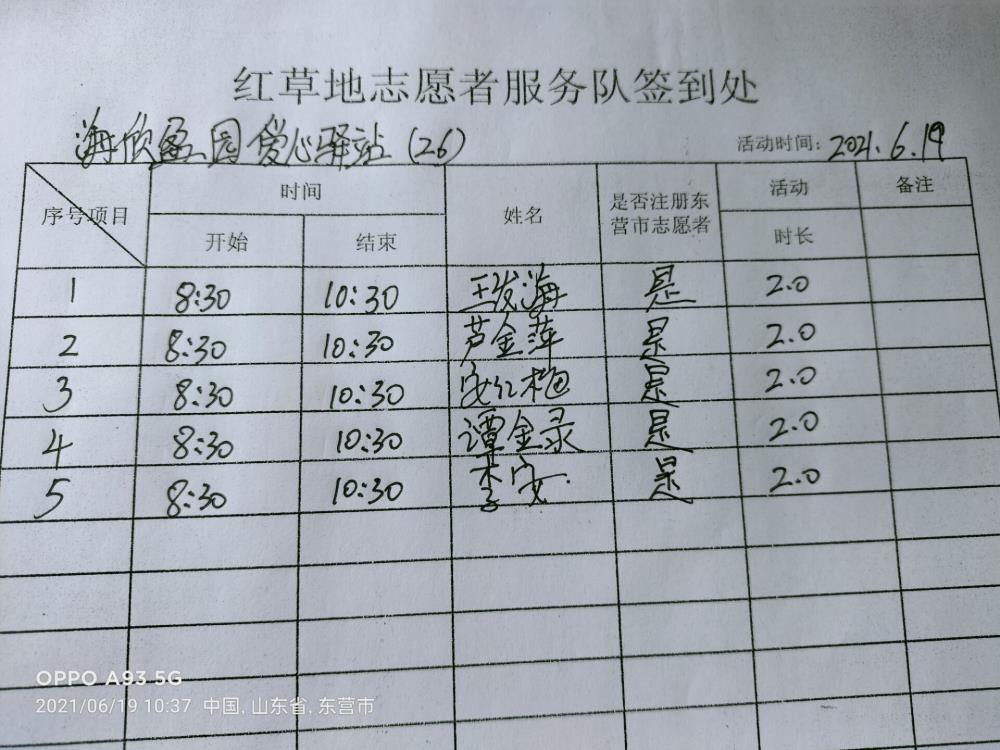 红草地志愿者服务队签到处
海欣盈园爱心驿站(26) 活动时间: 2021.6.19
序号项目 时间 姓名 是否注册东营市志愿者 活动 备注
开始 结束 时长
1 8:30 10:30 王发海 是 2.0
2 8:30 10:30 芦金萍 是 2.0
3 8:30 10:30 安红梅 是 2.0
4 8:30 10:30 谭金录 是 2.0
5 8:30 10:30 李安 是 2.0
OPPO A93 5G
2021/06/19 10:37 中国, 山东省, 东营市